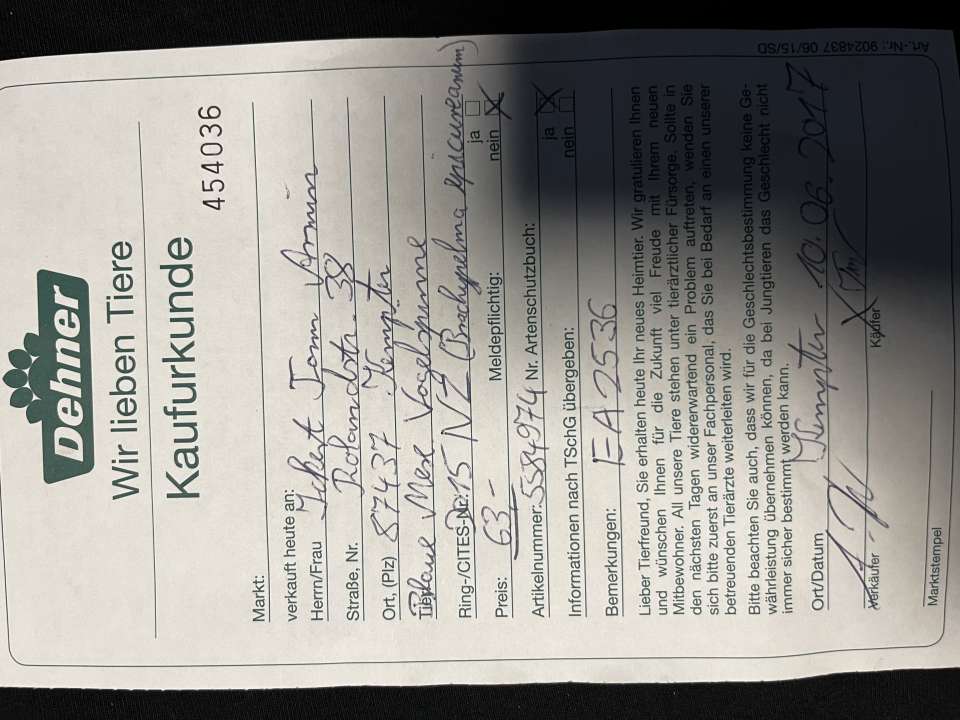 Dehner
Wir lieben Tiere
Kaufurkunde
454036
Markt:
verkauft heute an:
Herrn/Frau Tom Armin
Straße, Nr. 38
Ort, (Plz) 87437 Kempten
Tierart Vogelspinne
Ring-/CITES-Nr. D15 NZ (Brachypelma epicureanum)
Preis: 63,- Meldepflichtig: ja nein
Artikelnummer: 5584974 Nr. Artenschutzbuch:
Informationen nach TSchG übergeben: ja nein
Bemerkungen: EA 2536
Lieber Tierfreund, Sie erhalten heute Ihr neues Heimtier. Wir gratulieren Ihnen
und wünschen Ihnen für die Zukunft viel Freude mit Ihrem neuen
Mitbewohner. All unsere Tiere stehen unter tierärztlicher Fürsorge. Sollte in
den nächsten Tagen widererwartend ein Problem auftreten, wenden Sie
sich bitte zuerst an unser Fachpersonal, das Sie bei Bedarf an einen unserer
betreuenden Tierärzte weiterleiten wird.
Bitte beachten Sie auch, dass wir für die Geschlechtsbestimmung keine Ge-
währleistung übernehmen können, da bei Jungtieren das Geschlecht nicht
immer sicher bestimmt werden kann.
Ort/Datum Kempten 10.06.2017
Verkäufer X Käufer
Marktstempel
Art.-Nr.: 9024837 06/15/SD